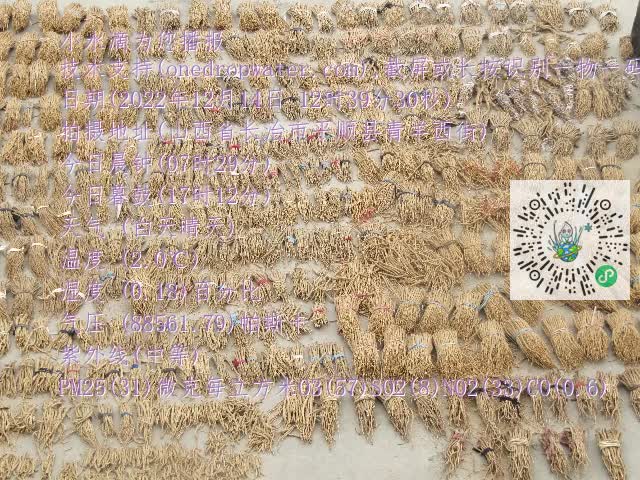 小水滴为您播报
技术支持(onedropwater.com) 截屏或长按识别一物一码
日期(2022年12月14日 12时39分36秒)
拍摄地址(山西省长治市平顺县青羊西街)
今日晨钟(07时29分)
今日暮鼓(17时12分)
天气 (白天晴天)
温度 (2.0℃)
湿度 (0.18)百分比
气压 (88561.79)帕斯卡
紫外线(中等)
PM25(31)微克每立方米O3(57)SO2(8)NO2(33)CO(0.6)